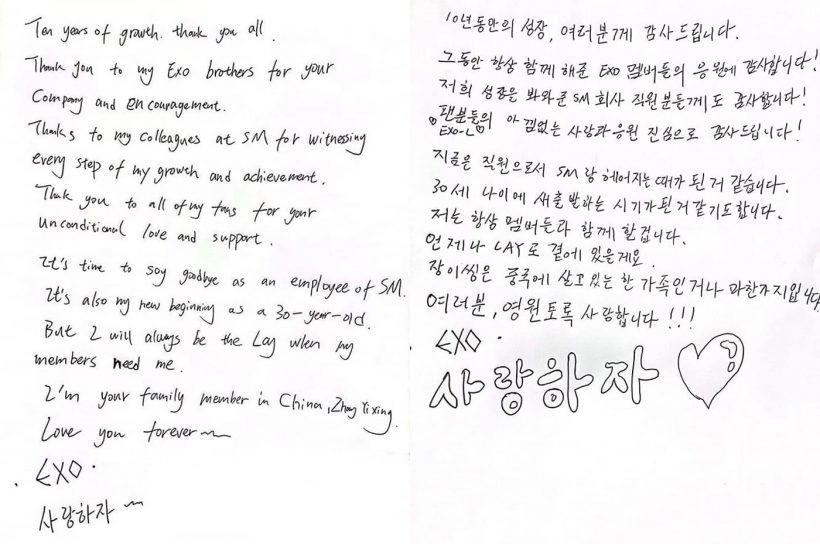 Ten years of growth. thank you all.
Thank you to my Exo brothers for your
Company and encouragement.
Thanks to my colleagues at SM for witnessing
every step of my growth and achievement.
Thank you to all of my fans for your
unconditional love and support.
It's time to say goodbye as an employee of SM.
It's also my new beginning as a 30-year-old.
But I will always be the Lay when my
members need me.
I'm your family member in China, Zhang Yixing.
Love you forever~~
EXO.
사랑하자~
10년동안의 성장, 여러분께 감사드립니다.
그동안 항상 함께 해준 EXO 멤버들의 응원에 감사합니다!
저희 성장은 봐와준 SM 회사 직원분들께도 감사합니다!
팬분들의 아낌없는 사랑과 응원 진심으로 감사드립니다!
EXO-L
지금은 직원으로서 SM랑 헤어지는 때가 된 거 같습니다.
30세 나이에 새출발하는 시기가 된거 같기도 합니다.
저는 항상 멤버들과 함께 할겁니다.
언제나 LAY로 곁에 있을게요.
장이씽은 중국에 살고 있는 한 가족인거나 마찬가지입니다
여러분, 영원토록 사랑합니다!!!
EXO.
사랑하자